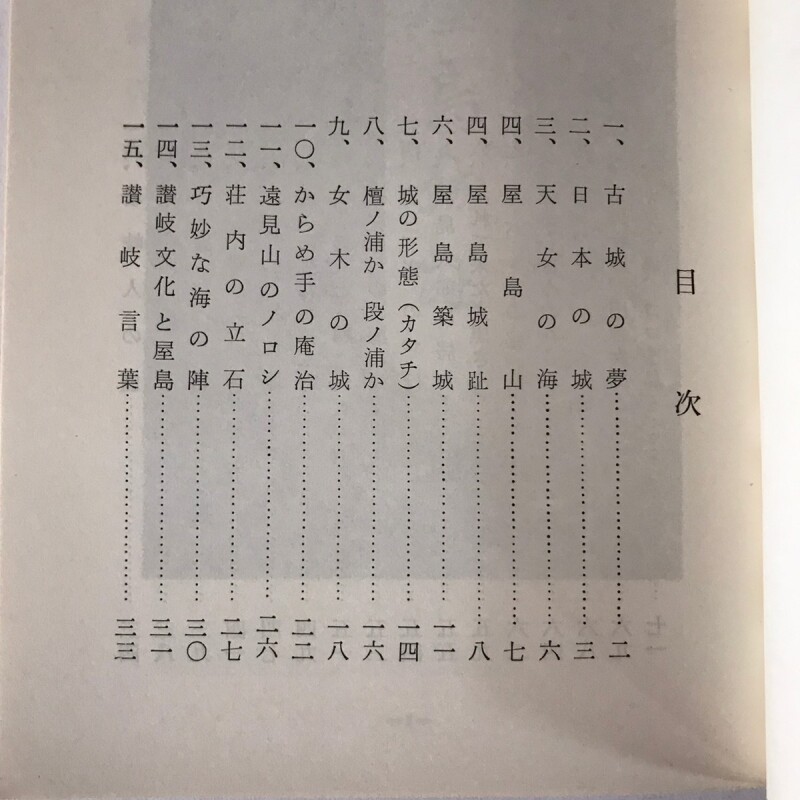 目次
一、古城の夢……二
二、日本の城……三
三、天女の海……六
四、屋島山……七
四、屋島城趾……八
六、屋島築城……一一
七、城の形態(カタチ)……一四
八、檀ノ浦か 段ノ浦か……一六
九、女木の城……一八
一〇、からめ手の庵治……二二
一一、遠見山のノロシ……二六
一二、荘内の立石……二七
一三、巧妙な海の陣……三〇
一四、讃岐文化と屋島……三一
一五、讃岐言葉……三三